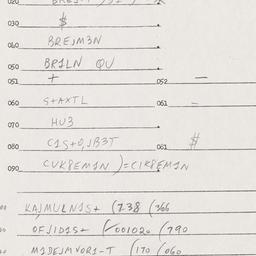 020
030 $
040 BREJM3N
050 BR1LN QU
051 + 052 —
060 S+AXTL 061 =
070 HU3
080 C1S+O,JB3T 081 #
090 CUK8EM1N)=C1K8EM1N
KAJMULN1S+ (738 (366
OFJ1D1S+ (001020 (790
M1DEJMVOR1-T (170 (060